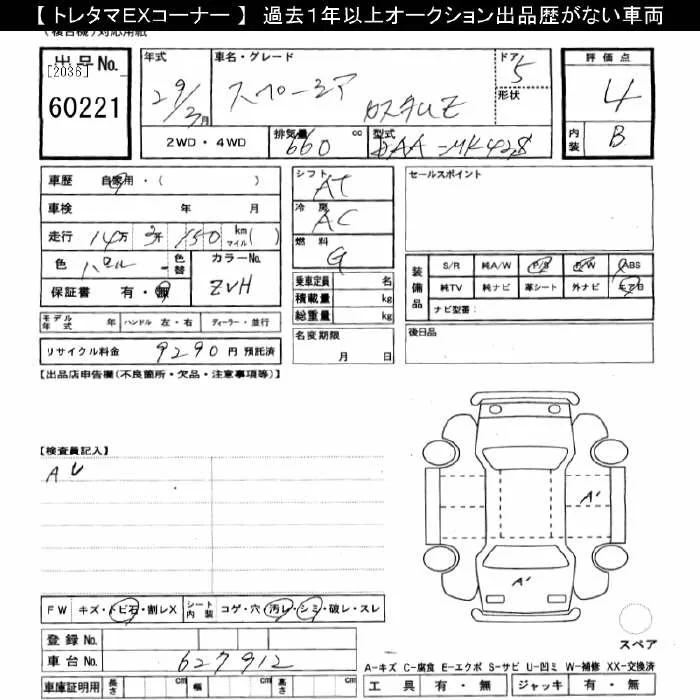 【 トレタマEXコーナー 】 過去1年以上オークション出品歴がない車両
出品No.
[2036]
60221
年式
29/3月
車名・グレード
スペーシア
カスタムZ
ドア
5
形状
評価点
4
内装
B
2WD・4WD
排気量
660
cc
型式
DAA-MK42S
車歴 自家用・( )
車検 年 月
走行 14万 3千 150 km マイル( )
色 パール
色替
カラーNo.
ZVH
保証書 有・無
モデル年式 年 ハンドル 左・右 ディーラー・並行
リサイクル料金 9290 円 預託済
シフト
AT
冷房
AC
燃料
G
乗車定員 名
積載量 kg
総重量 kg
名変期限
月 日
セールスポイント
装備品
S/R 純A/W P/S P/W ABS
純TV 純ナビ 革シート 外ナビ エアB
ナビ型番:
後日品
【出品店申告欄(不良箇所・欠品・注意事項等)】
【検査員記入】
AU
A'
A'
FW キズ・トビ石・割レX
シート内装 コゲ・穴・汚レ・シミ・破レ・スレ
登録No.
車台No. 627912
車庫証明用 長さ cm 幅 cm 高さ cm
スペア
A-キズ C-腐食 E-エクボ S-サビ U-凹ミ W-補修 XX-交換済
工具 有・無 ジャッキ 有・無